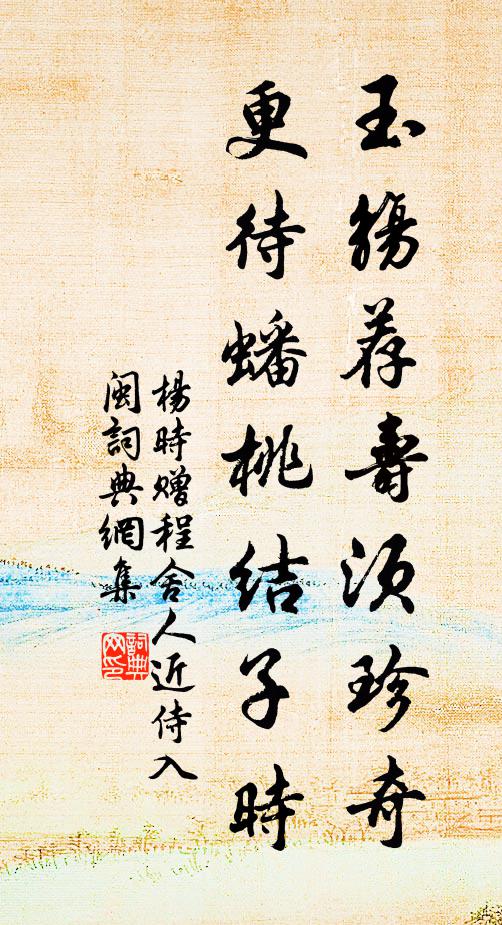 玉觴荐壽須珍奇
更待蟠桃結子時
楊時贈程舍人近侍入
閩詞典網集
詞典网印